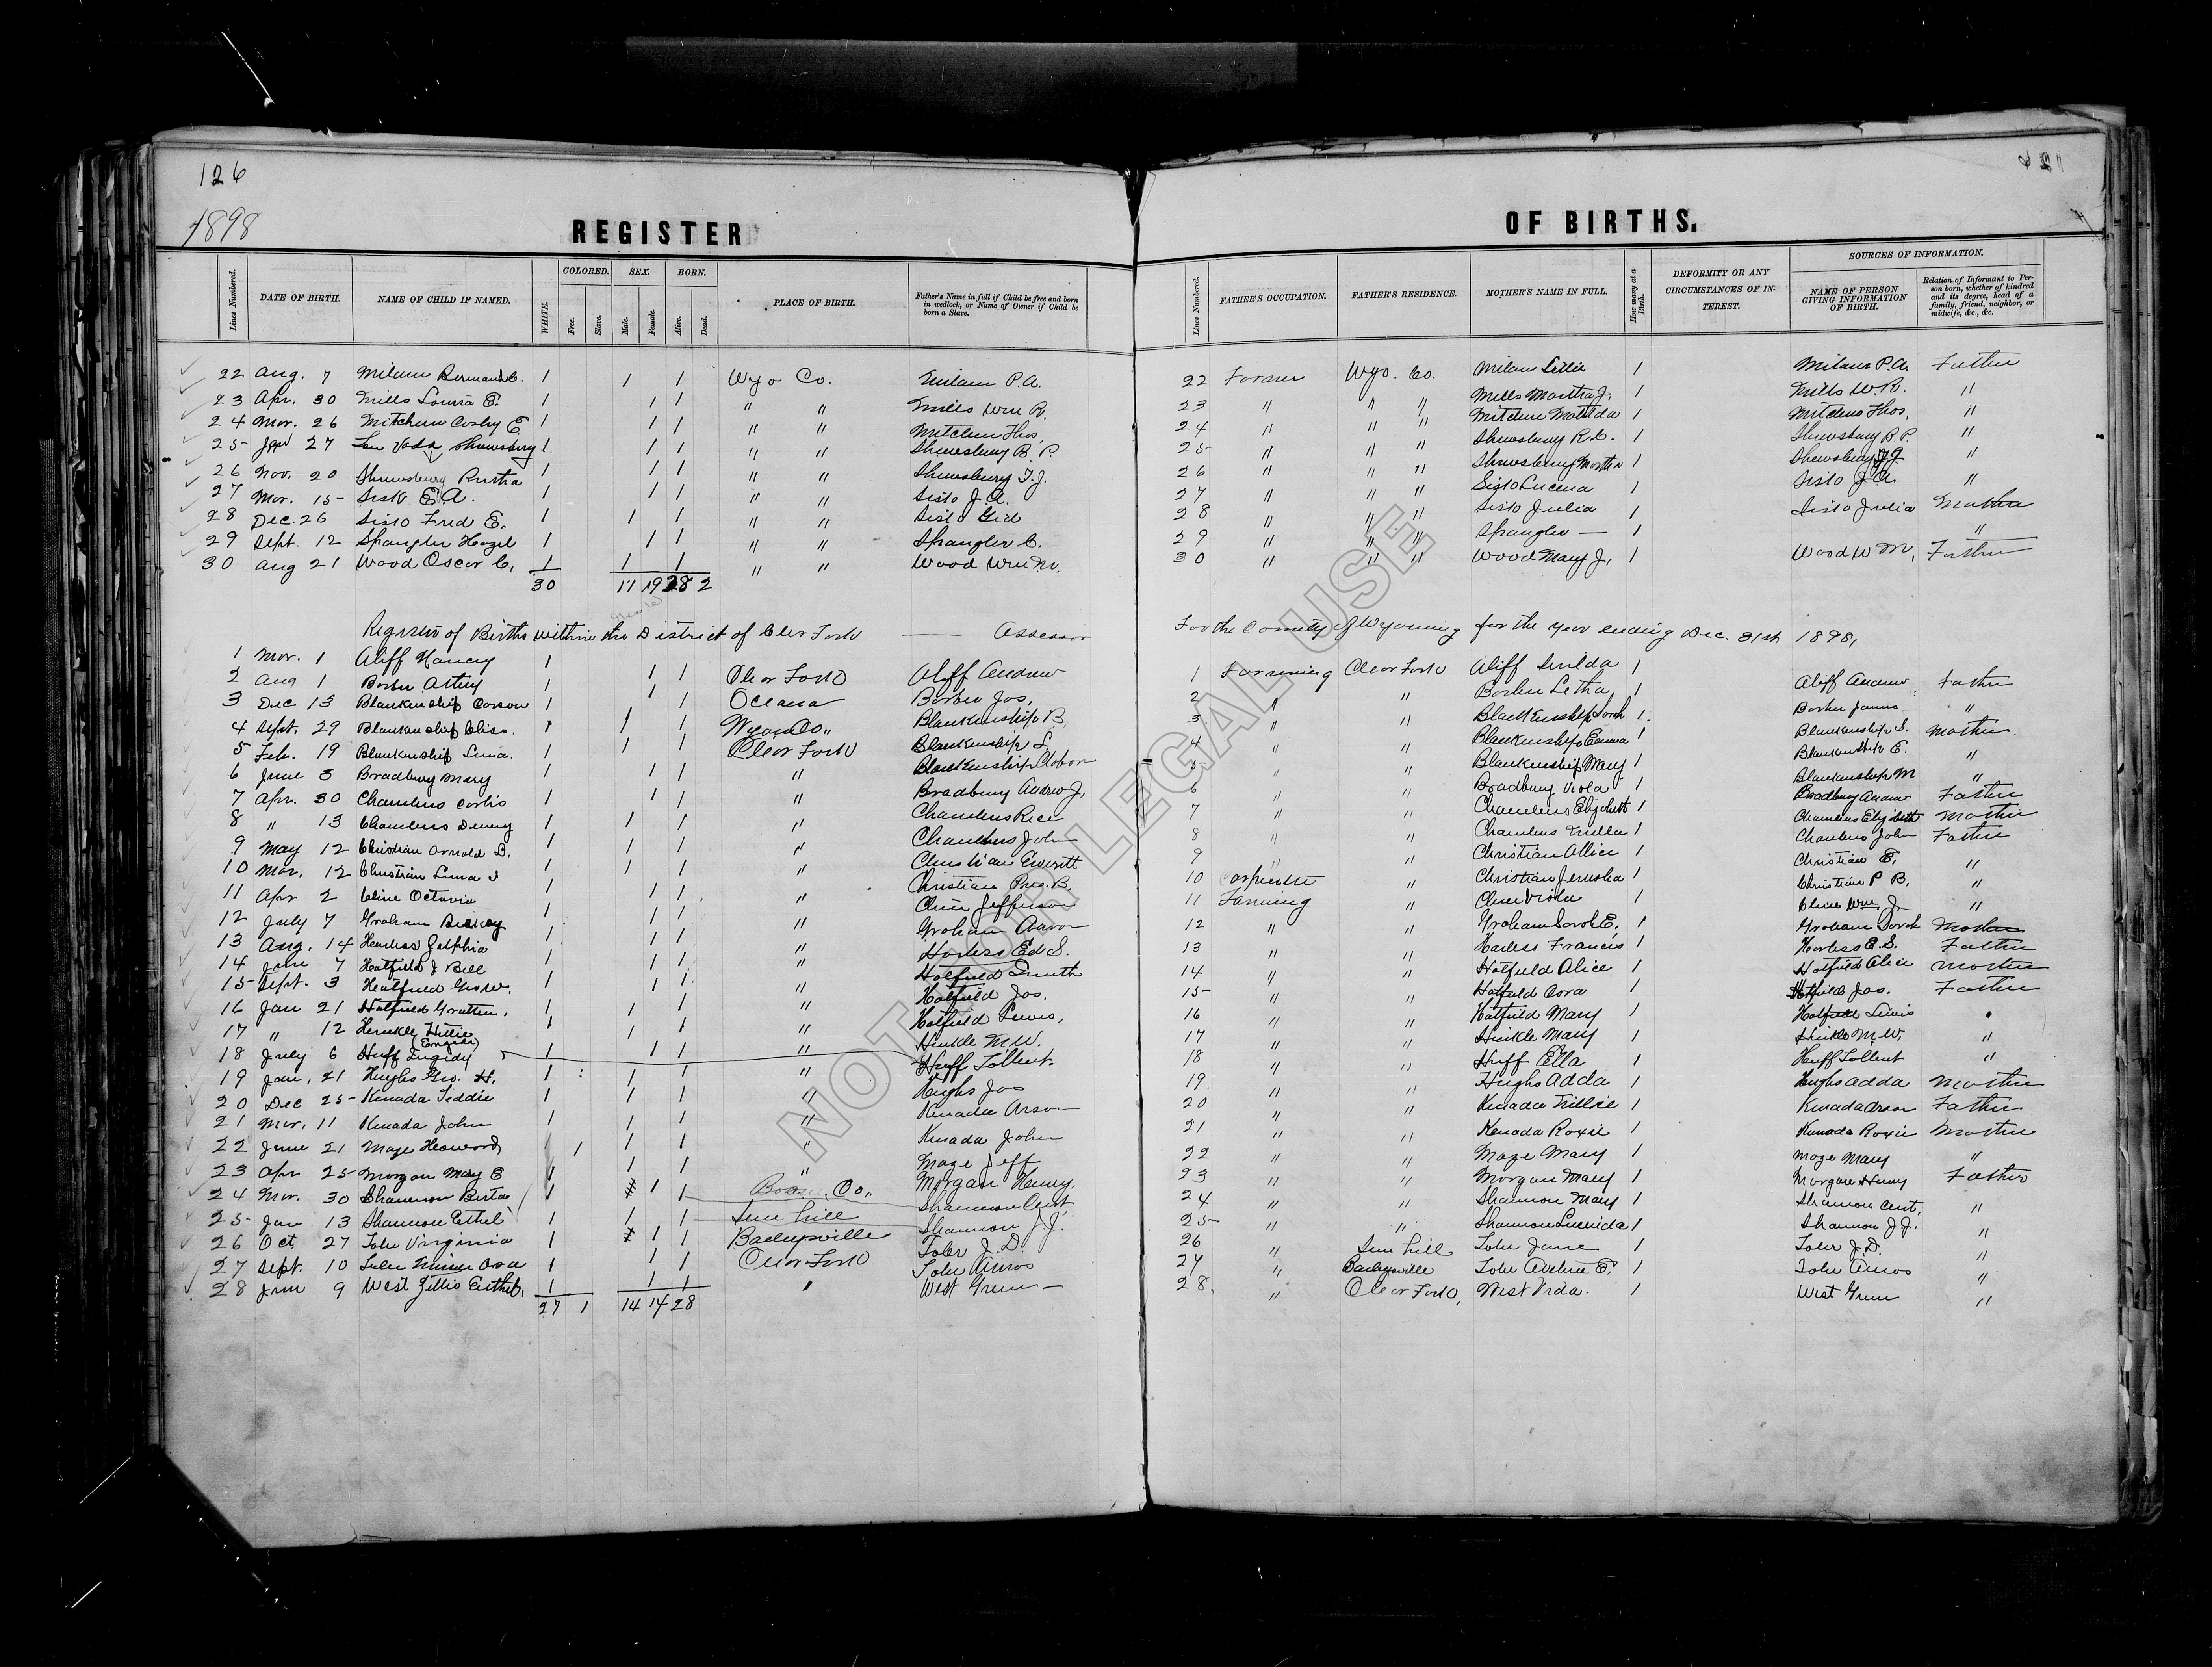 126
1898
REGISTER OF BIRTHS.
Lines Numbered. DATE OF BIRTH. NAME OF CHILD IF NAMED. WHITE. COLORED. Free. Slave. SEX. Male. Female. BORN. Alive. Dead. PLACE OF BIRTH. Father's Name in full if Child be free and born in wedlock, or Name of Owner if Child be born a Slave.
Lines Numbered. FATHER'S OCCUPATION. FATHER'S RESIDENCE. MOTHER'S NAME IN FULL. How many at a Birth. DEFORMITY OR ANY CIRCUMSTANCES OF INTEREST. SOURCES OF INFORMATION. NAME OF PERSON GIVING INFORMATION OF BIRTH. Relation of Informant to Person born, whether of kindred and its degree, head of a family, friend, neighbor, or midwife, &c., &c.
22 Aug. 7 Milam 1 1 1 Wyo Co. Milam P.A. 22 Farmer Wyo. Co. Milam Lillie 1 Milam P.A. Father
23 Apr. 30 Mills Louisa E. 1 1 1 " " Mills Wm R. 23 " " " Mills Martha J. 1 Mills W.R. "
24 Mar. 26 Mitchem Cosby E 1 1 1 " " Mitchem Thos. 24 " " " Mitchem Matilda 1 Mitchem Thos. "
25 Jan 27 Vada Shrewsbury 1 1 1 " " Shrewsbury B. P. 25 " " " Shrewsbury R.C. 1 Shrewsbury B.P. "
26 Nov. 20 Shrewsbury 1 1 1 " " Shrewsbury T.J. 26 " " " Shrewsbury Martha 1 Shrewsbury "
27 Mar. 15 Sisk E.A. 1 1 1 " " Sisk J.A. 27 " " " Sisk Lucena 1 Sisk J.A. "
28 Dec. 26 Sisk Fred E. 1 1 1 " " Sisk Gid 28 " " " Sisk Julia 1 Sisk Julia Mother
29 Sept. 12 Spangler Hazel 1 1 1 " " Spangler C. 29 " " " Spangler — 1 "
30 Aug 21 Wood Oscar C. 1 1 1 " " Wood Wm M. 30 " " " Wood Mary J. 1 Wood W M. Father
30 11 19 28 2
Register of Births within the District of Clear Fork — Assessor For the County of Wyoming for the year ending Dec. 31st 1898,
1 Mar. 1 Aliff Nancy 1 1 1 Clear Fork Aliff Andrew 1 Farming Clear Fork Aliff 1 Aliff Andrew Father
2 Aug 1 1 1 1 Oceana Jos. 2 " " Letha 1 James "
3 Dec 13 Blankenship Carson 1 1 1 Wyom Co., Blankenship B. 3 " " Blankenship Sarah 1 Blankenship S. Mother
4 Sept. 29 Blankenship 1 1 1 Clear Fork Blankenship L. 4 " " Blankenship Emma 1 Blankenship E. "
5 Feb. 19 Blankenship Lena 1 1 1 " Blankenship 5 " " Blankenship Mary 1 Blankenship M "
6 June 3 Bradbury Mary 1 1 1 " Bradbury Andrew J. 6 " " Bradbury Viola 1 Bradbury Andrew Father
7 Apr. 30 Chambers 1 1 1 " Chambers Rice 7 " " Chambers Elizabeth 1 Chambers Elizabeth Mother
8 " 13 Chambers Dewey 1 1 1 " Chambers John 8 " " Chambers 1 Chambers John Father
9 May 12 Christian Arnold 1 1 1 " Christian Everett 9 " " Christian Allice 1 Christian E. "
10 Mar. 12 Christian Luna 1 1 1 " Christian B. 10 Carpenter " Christian Jerusha 1 Christian P B. "
11 Apr 2 Cline Octavia 1 1 1 " Cline Jefferson 11 Farming " Cline Viola 1 Cline Wm. J. "
12 July 7 Graham 1 1 1 " Graham Aaron 12 " " Graham Sarah E. 1 Graham Sarah Mother
13 Aug. 14 Harless 1 1 1 " Harless Ed S. 13 " " Harless Francis 1 Harless E.S. Father
14 June 7 Hatfield J Bell 1 1 1 " Hatfield Smith 14 " " Hatfield Alice 1 Hatfield Alice Mother
15 Sept. 3 Hatfield 1 1 1 " Hatfield Jos. 15 " " Hatfield Cora 1 Hatfield Jas. Father
16 Jan 21 Hatfield 1 1 1 " Hatfield Lewis, 16 " " Hatfield Mary 1 Hatfield Lewis "
17 " 12 Hinkle 1 1 1 " Hinkle M.W. 17 " " Hinkle Mary 1 Hinkle M.W. "
18 July 6 Huff 1 1 1 " Huff Tolbert 18 " " Huff Ella 1 Huff Tolbert "
19 Jan. 21 Hughs Geo. H. 1 1 1 " Hughs Jas 19 " " Hughs Adda 1 Hughs Adda Mother
20 Dec 25 Kenada Teddie 1 1 1 " Kenada Arson 20 " " Kenada 1 Kenada Arson Father
21 Mar. 11 Kenada John 1 1 1 " Kenada John 21 " " Kenada Roxie 1 Kenada Roxie Mother
22 June 21 Maze 1 1 1 " Maze Jeff 22 " " Maze Mary 1 Maze Mary "
23 Apr 25 Morgan Mary E 1 1 1 Co., Morgan Henry. 23 " " Morgan Mary 1 Morgan Henry Father
24 Mar. 30 Shannon Berta 1 1 1 Sun hill Shannon 24 " " Shannon Mary 1 Shannon "
25 Jan 13 Shannon Ethel 1 1 1 Baileysville Shannon J.J. 25 " " Shannon Lucinda 1 Shannon J.J. "
26 Oct 27 Toler Virginia 1 1 1 Clear Fork Toler J.D. 26 " Sun hill Toler Jane 1 Toler J.D. "
27 Sept. 10 Toler 1 1 1 Toler Amos 27 " Baileysville Toler Aveline E. 1 Toler Amos "
28 9 West 1 1 1 " West Green — 28 " Clear Fork, West 1 West Green "
27 1 14 14 28
NOT FOR LEGAL USE